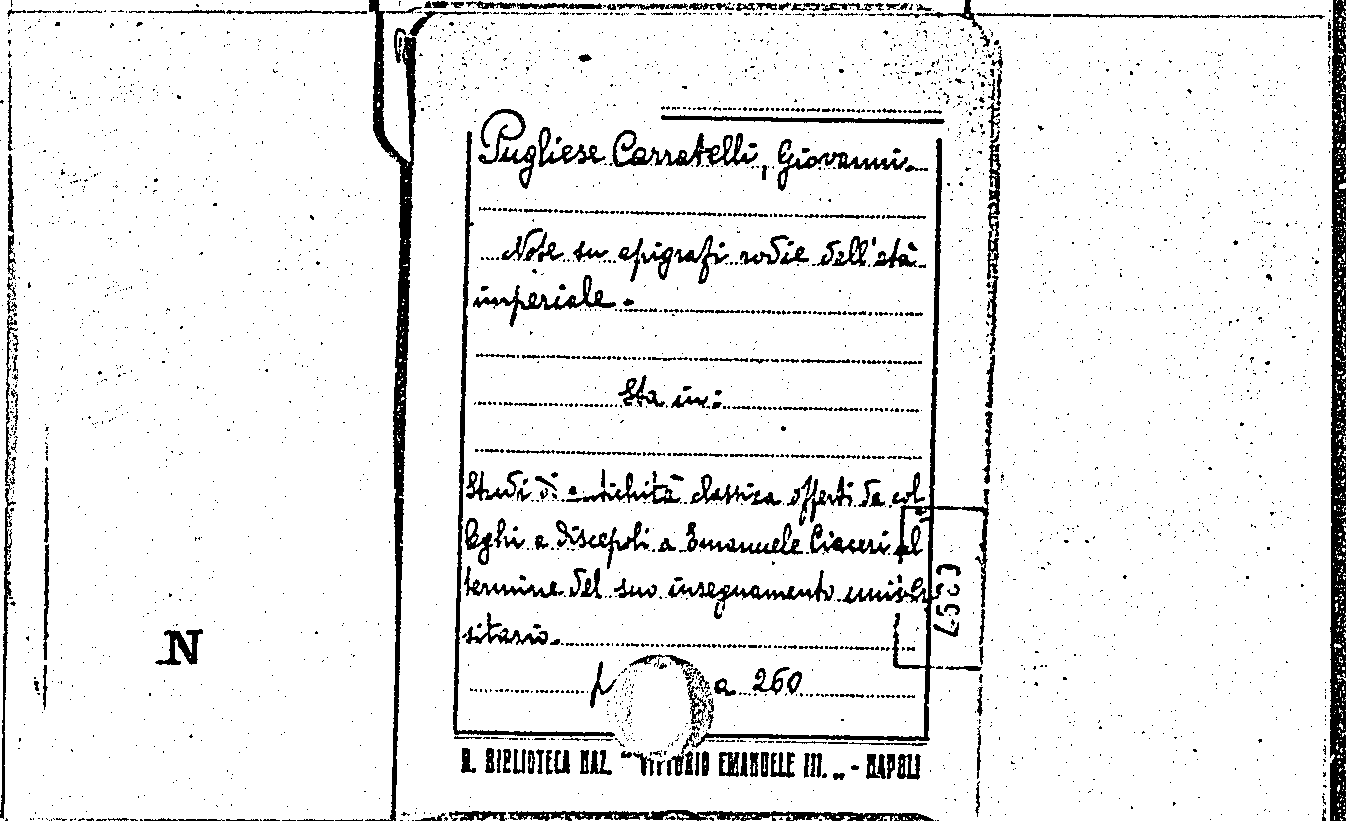 Pugliese Carratelli, Giovanni.
Note su epigrafi rodie dell'età
imperiale.
Sta in:
Studi di antichità classica offerti da col
leghi e discepoli a Emanuele Ciaceri al
termine del suo insegnamento univer
sitario.
p a 260
N
R. BIBLIOTECA NAZ. "VITTORIO EMANUELE III." - NAPOLI